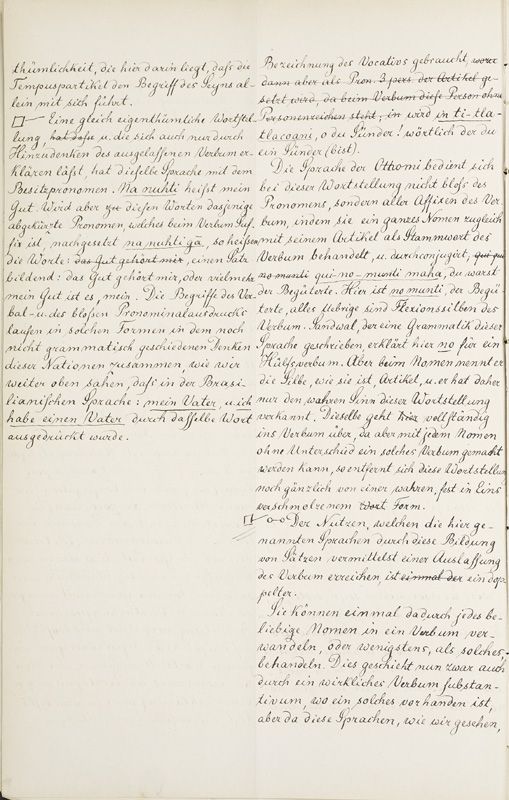 thümlichkeit, die hier darin liegt, daſs die
Tempuspartikel den Begriff des Seyns al-
lein mit sich führt.
Eine gleich eigenthümliche Wortstel-
lung hat daſse u. die sich auch nur durch
Hinzudenken des ausgelaſſenen Verbum er-
klären läſst, hat dieſelbe Sprache mit dem
Besitzpronomen. Na nuhti heiſst mein
Gut. Wird aber zu dieſen Worten dasjenige
abgekürzte Pronomen, welches beim Verbum Suf-
fix ist, nachgesetzt na nuhti gâ, so heiſsen
die Worte: das Gut gehört mir, einen Satz
bildend: das Gut gehört mir, oder vielmehr
mein Gut ist es, mein. Die Begriffe des Ver-
bal- u. des bloſsen Pronominalausdrucks
laufen in solchen Formen in dem noch
nicht grammatisch geschiedenen Denken
dieser Nationen zusammen, wie wir
weiter oben sahen, daſs in der Brasi-
lianiſchen Sprache: mein Vater, u. ich
habe einen Vater durch daſſelbe Wort
ausgedrückt wurde.
Bezeichnung des Vocativs gebraucht, worer
dann aber als Pron. 3 pers. der Artikel ge-
setzt wird, da beim Verbum dieſe Person ohne
Personenzeichen steht, in wird in ti-tla-
tlacogni, o du Sünder! wörtlich der du
ein Sünder (bist).
Die Sprache der Othomi bedient sich
bei dieser Wortstellung nicht bloſs des
Pronomens, sondern aller Affixen des Ver-
bum, indem sie ein ganzes Nomen zugleich
mit seinem Artikel als Stammwort des
Verbum behandelt, u. durchconjugirt, qui qui
no munti qui-no-munti maha, du warst
der Begüterte. Hier ist no munti, der Begü-
terte, alles übrige sind Flexionssilben des
Verbum. Sandwal, der eine Grammatik dieser
Sprache geschrieben erklärt hier no für ein
Hülfsverbum. Aber beim Nomen nennt er
die Silbe, wie sie ist, Artikel, u. er hat daher
nur den wahren Sinn dieser Wortstellung
verkannt. Dieselbe geht hier vollständig
ins Verbum über, da aber mit jedem Nomen
ohne Unterschied ein solches Verbum gemacht
werden kann, so entfernt sich diese Wortstellung
noch gänzlich von einer wahren, fest in Eins
verschmolzenem Wort Form.
Der Nutzen, welchen die hier ge-
nannten Sprachen durch diese Bildung
von Sätzen vermittelst einer Auslaſſung
des Verbum erreichen, ist einmal der ein dop-
pelter.
Sie können einmal dadurch jedes be-
liebige Nomen in ein Verbum ver-
wandeln, oder wenigstens, als solches,
behandeln. Dies geschieht nun zwar auch
durch ein wirkliches Verbum ſubstan-
tivum, wo ein solches vorhanden ist,
aber da diese Sprachen, wie wir gesehen,